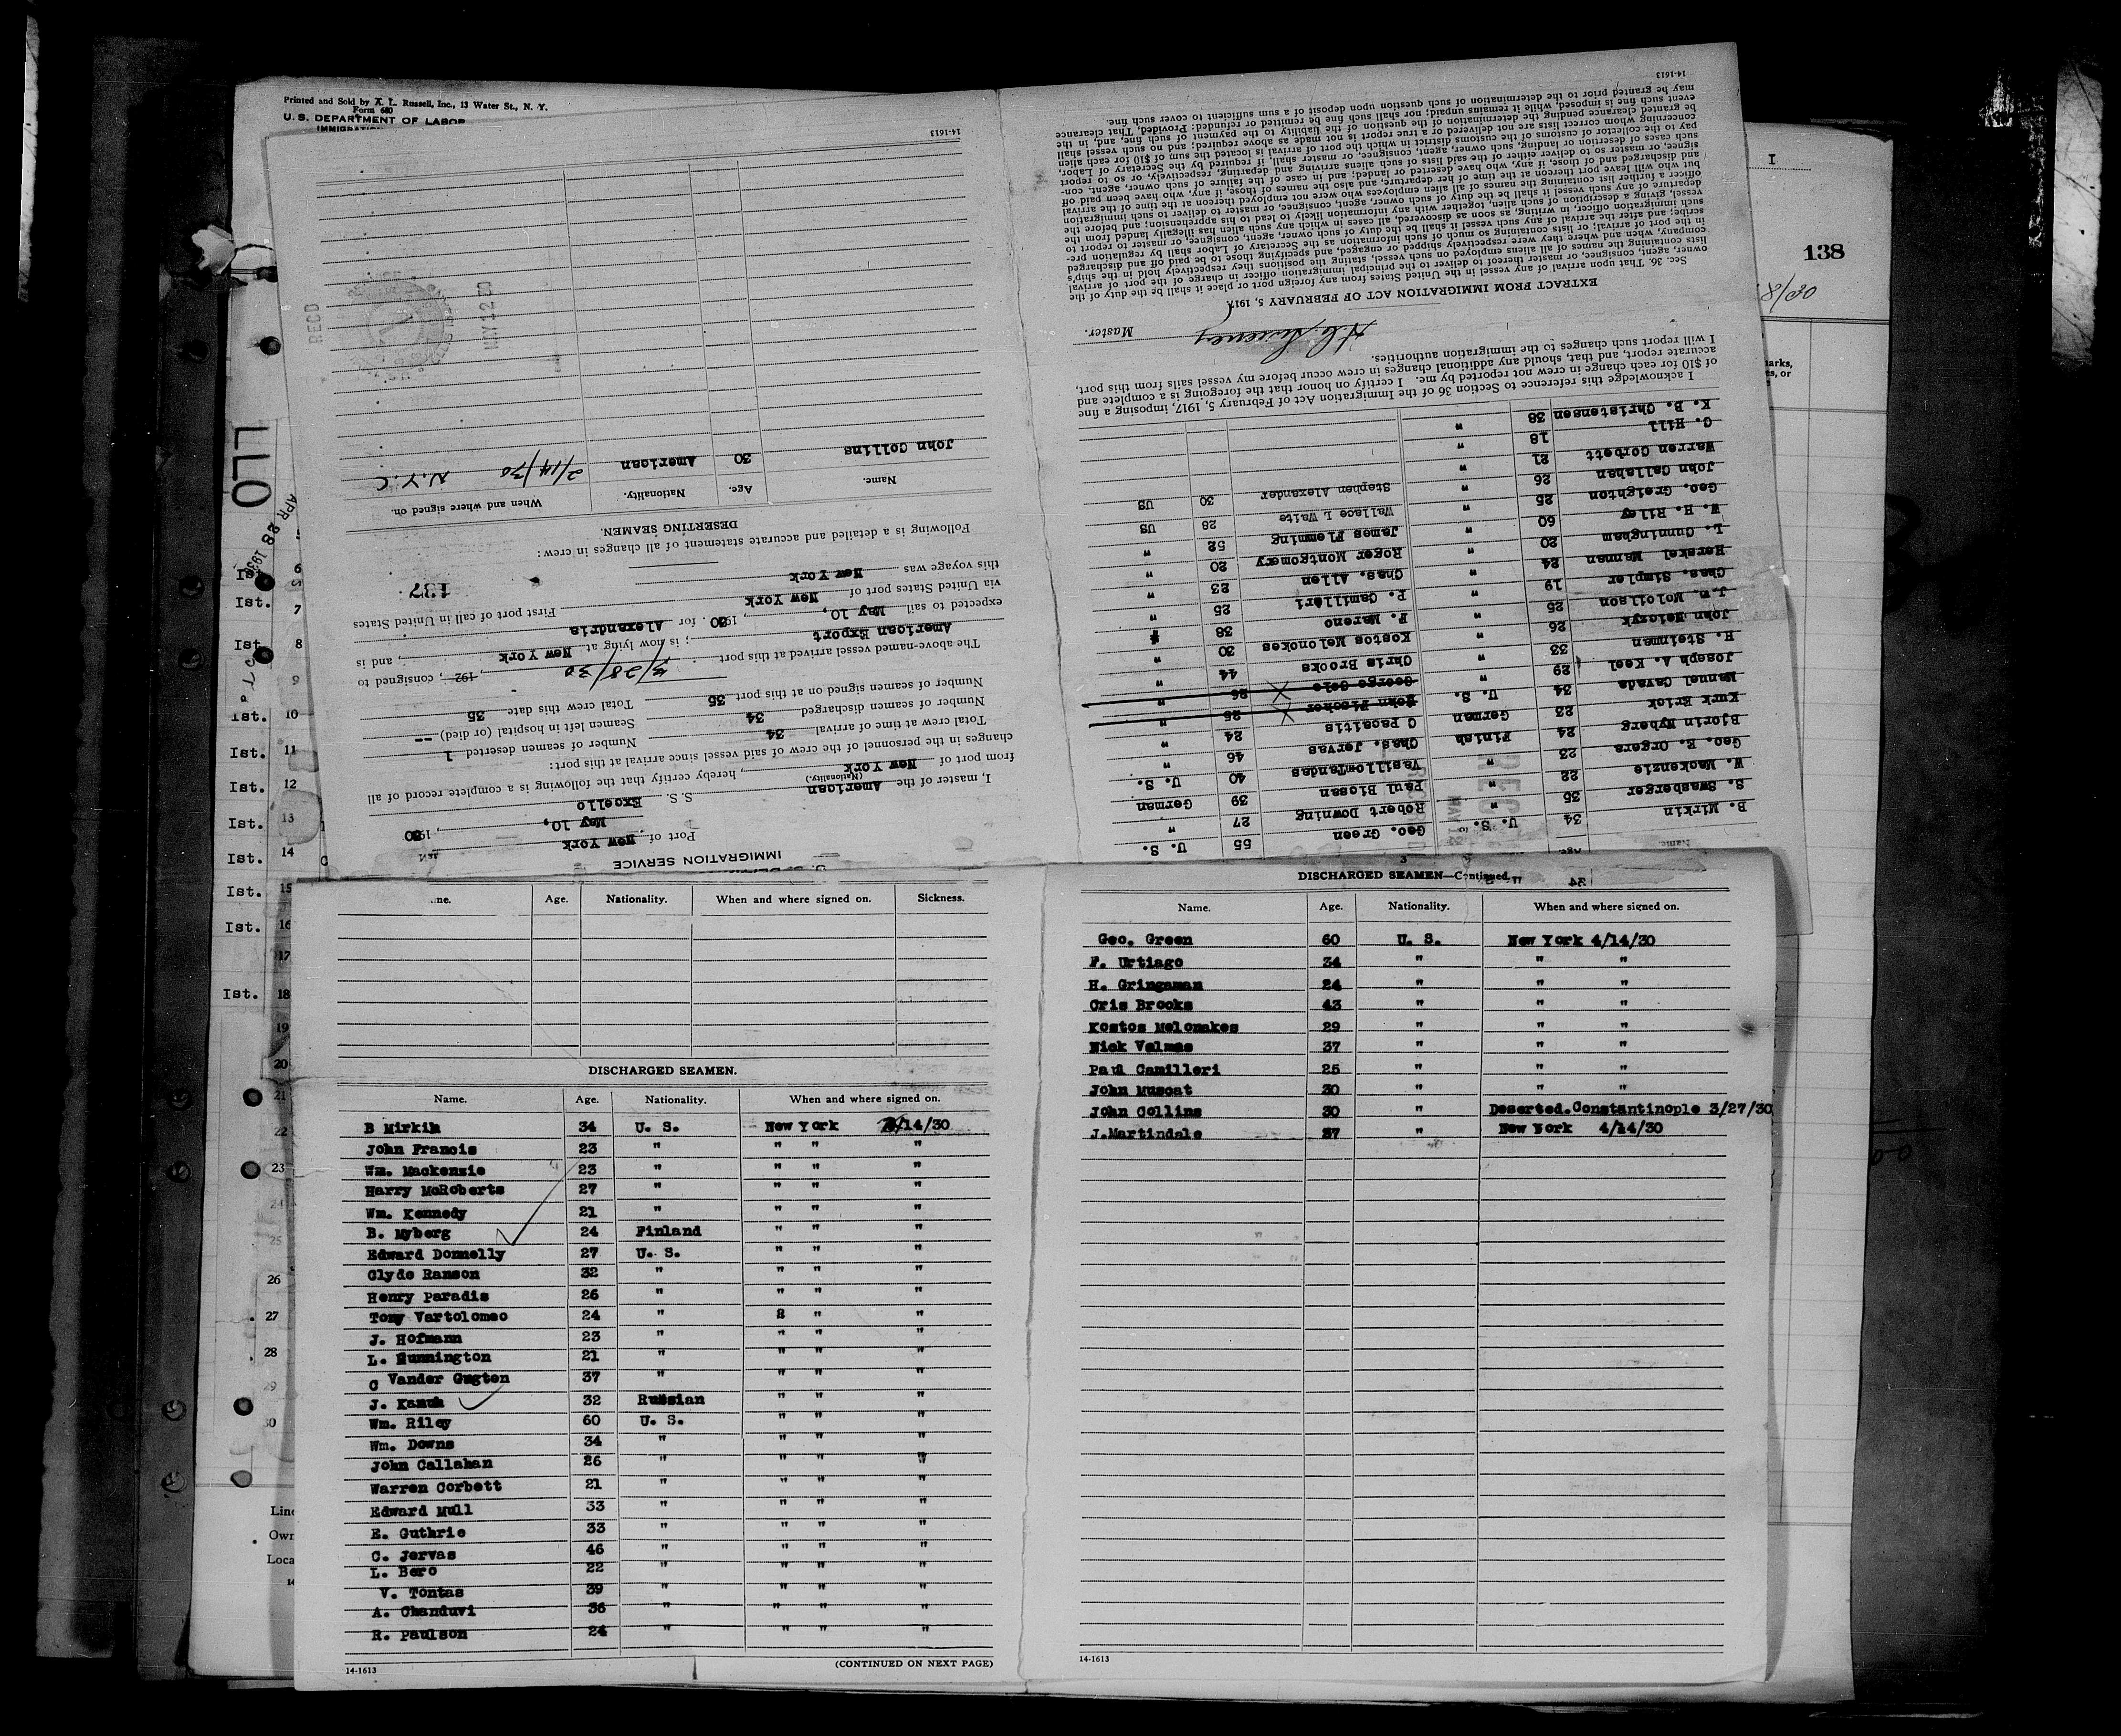 Printed and Sold by A. L. Russell, Inc., 13 Water St., N. Y.
Form 680
U. S. DEPARTMENT OF LABOR
138
LLO
APR 28 1930
Ist. 6
Ist. 7
Ist. 8
9
Ist. 10
Ist. 11
Ist. 12
Ist. 13
Ist. 14
Ist. 15
Ist. 16
17
Ist. 18
19
20
21
22
23
24
25
26
27
28
29
30
Line
Own
Loca
IMMIGRATION SERVICE
Port of New York
May 10, 1930
I, master of the American S. S. Excello
(Nationality.)
from port of New York, hereby certify that the following is a complete record of all
changes in the personnel of the crew of said vessel since arrival at this port:
Total crew at time of arrival 34 Number of seamen deserted 1
Number of seamen discharged 34 Seamen left in hospital (or died) --
Number of seamen signed on at this port 35 Total crew this date 35
The above-named vessel arrived at this port 3/28/30, 192 , consigned to
American Export ; is now lying at New York, and is
expected to sail May 10, 1930. for Alexandria
via United States port of New York First port of call in United States
this voyage was New York
137
Following is a detailed and accurate statement of all changes in crew:
DESERTING SEAMEN.
Name. Age. Nationality. When and where signed on.
John Collins 30 American 2/14/30 N.Y.C
RECD
MAY 12 30
14-1613
Name. Age.
B. Mirkin 34 U. S.
S. Swasberger 35 "
W. Mackenzie 22 "
Geo. E. Orgera 23 "
Bjorin Nyberg 24 Finish
Kurk Erick 23 German
Manuel Cavada 34 U. S.
Joseph A. Keel 29 "
H. Steinman 33 "
John Belczyk 26 "
J.W. Molollson 25 "
Chas. Simpler 19 "
Herskel Manman 24 "
L. Cunningham 20 "
W. H. Riley 60 "
Geo. Creighton 25 "
John Callahan 26 "
Warren Corbett 21 "
C. Hill 18 "
K. B. Christensen 38 "
Geo. Green 55 U. S.
Robert Downing 27 "
Paul Biosan 39 German
Vasillo Tandas 40 U. S.
Chas. Jervas 46 "
C Pacaitis 24 "
John Fischer 25 "
George Cole 26 "
Chris Brooks 44 "
Kostos Melonokes 30 "
F. Mareno 38 "
P. Camilleri 25 "
Chas. Allen 23 "
Roger Montgomery 20 "
James Flemming 52 "
Wallace L Waite 28 US
Stephen Alexander 30 US
I acknowledge this reference to Section 36 of the Immigration Act of February 5, 1917, imposing a fine
of $10 for each change in crew not reported by me. I certify on honor that the foregoing is a complete and
accurate report, and that, should any additional changes in crew occur before my vessel sails from this port,
I will report such changes to the immigration authorities.
Master.
EXTRACT FROM IMMIGRATION ACT OF FEBRUARY 5, 1917.
Sec. 36. That upon arrival of any vessel in the United States from any foreign port or place it shall be the duty of the
owner, agent, consignee, or master thereof to deliver to the principal immigration officer in charge of the port of arrival
lists containing the names of all aliens employed on such vessel, stating the positions they respectively hold in the ship's
company, when and where they were respectively shipped or engaged, and specifying those to be paid off and discharged
in the port of arrival; or lists containing so much of such information as the Secretary of Labor shall by regulation pre-
scribe; and after the arrival of any such vessel it shall be the duty of such owner, agent, consignee, or master to report to
such immigration officer, in writing, as soon as discovered, all cases in which any such alien has illegally landed from the
vessel, giving a description of such alien, together with any information likely to lead to his apprehension; and before the
departure of any such vessel it shall be the duty of such owner, agent, consignee, or master to deliver to such immigration
officer a further list containing the names of all alien employees who were not employed thereon at the time of the arrival
but who will leave port thereon at the time of her departure, and also the names of those, if any, who have been paid off
and discharged and of those, if any, who have deserted or landed; and in case of the failure of such owner, agent, con-
signee, or master so to deliver either of the said lists of such aliens arriving and departing, respectively, or so to report
such cases of desertion or landing, such owner, agent, consignee, or master shall, if required by the Secretary of Labor,
pay to the collector of customs of the customs district in which the port of arrival is located the sum of $10 for each alien
concerning whom correct lists are not delivered or a true report is not made as above required; and no such vessel shall
be granted clearance pending the determination of the question of the liability to the payment of such fine, and, in the
event such fine is imposed, while it remains unpaid; nor shall such fine be remitted or refunded: Provided, That clearance
may be granted prior to the determination of such question upon deposit of a sum sufficient to cover such fine.
14-1613
me. Age. Nationality. When and where signed on. Sickness.
DISCHARGED SEAMEN.
Name. Age. Nationality. When and where signed on.
B Mirkin 34 U. S. New York 4/14/30
John Francis 23 " " " "
Wm. Mackenzie 23 " " " "
Harry McRoberts 27 " " " "
Wm. Kennedy 21 " " " "
B. Myberg 24 Finland " " "
Edward Donnelly 27 U. S. " " "
Clyde Ranson 32 " " " "
Henry Paradis 26 " " " "
Tony Vartolomeo 24 " 8 " "
J. Hofmann 23 " " " "
L. Hunnington 21 " " " "
C Vander Gugten 37 " " " "
J. Kamuh 32 Russian " " "
Wm. Riley 60 U. S. " " "
Wm. Downs 34 " " " "
John Callahan 26 " " " "
Warren Corbett 21 " " " "
Edward Mull 33 " " " "
E. Guthrie 33 " " " "
C. Jervas 46 " " " "
L. Bero 22 " " " "
V. Tontas 39 " " " "
A. Chanduvi 36 " " " "
R. Paulson 24 " " " "
14-1613 (CONTINUED ON NEXT PAGE)
DISCHARGED SEAMEN—Continued.
Name. Age. Nationality. When and where signed on.
Geo. Green 60 U. S. New York 4/14/30
F. Urtiago 34 " " "
H. Gringaman 24 " " "
Cris Brooks 43 " " "
Kostos Melonakes 29 " " "
Nick Valmas 37 " " "
Paul Camilleri 25 " " "
John Muscat 30 " " "
John Collins 30 " Deserted.Constantinople 3/27/30
J.Martindale 27 " New York 4/14/30
14-1613